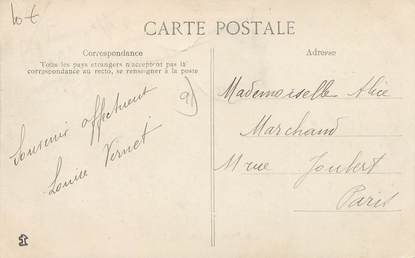 10€
CARTE POSTALE
Correspondance
Tous les pays étrangers n'acceptent pas la
correspondance au recto, se renseigner à la poste
Adresse
91
Souvenir affectueux
Louise Vernet
Mademoiselle Alice
Marchand
11 rue Joubert
Paris